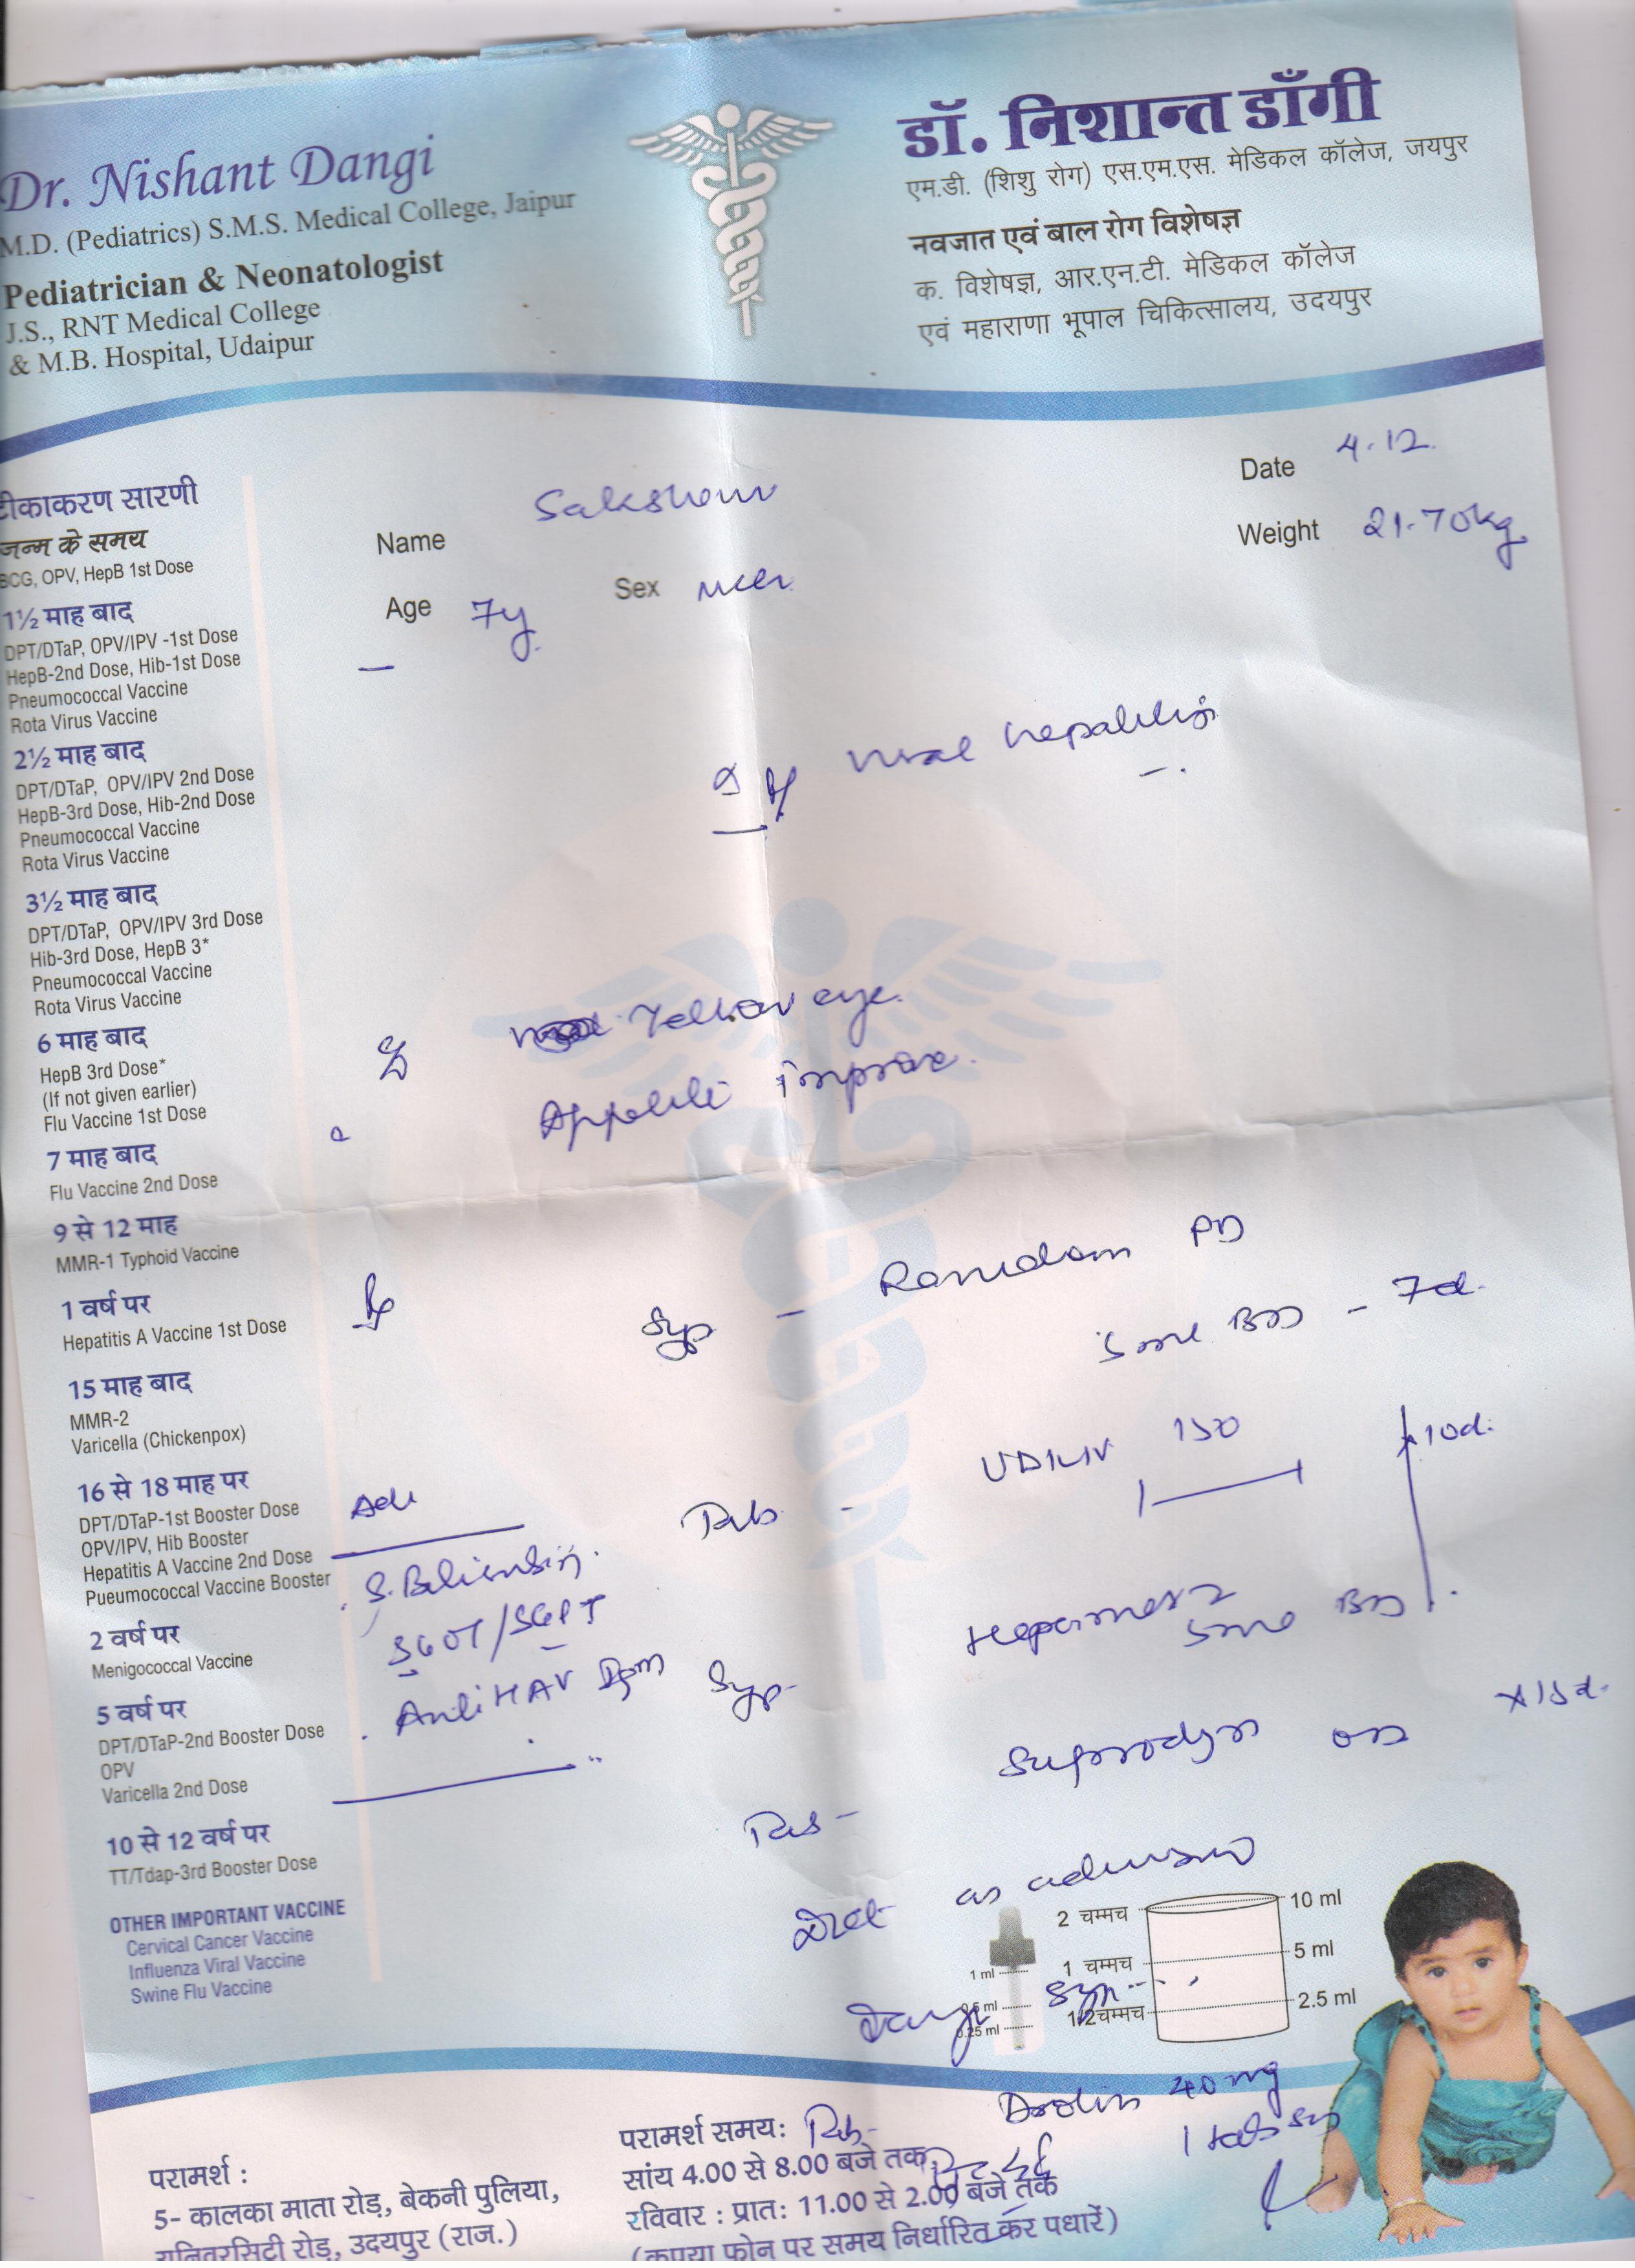 Dr. Nishant Dangi
M.D. (Pediatrics) S.M.S. Medical College, Jaipur
Pediatrician & Neonatologist
J.S., RNT Medical College
& M.B. Hospital, Udaipur
डॉ. निशान्त डाँगी
एम.डी. (शिशु रोग) एस.एम.एस. मेडिकल कॉलेज, जयपुर
नवजात एवं बाल रोग विशेषज्ञ
क. विशेषज्ञ, आर.एन.टी. मेडिकल कॉलेज
एवं महाराणा भूपाल चिकित्सालय, उदयपुर
Date 4.12.
Name Saksham
Weight 21.70kg
Age 7y. Sex
टीकाकरण सारणी
जन्म के समय
BCG, OPV, HepB 1st Dose
1½ माह बाद
DPT/DTaP, OPV/IPV -1st Dose
HepB-2nd Dose, Hib-1st Dose
Pneumococcal Vaccine
Rota Virus Vaccine
2½ माह बाद
DPT/DTaP, OPV/IPV 2nd Dose
HepB-3rd Dose, Hib-2nd Dose
Pneumococcal Vaccine
Rota Virus Vaccine
3½ माह बाद
DPT/DTaP, OPV/IPV 3rd Dose
Hib-3rd Dose, HepB 3*
Pneumococcal Vaccine
Rota Virus Vaccine
6 माह बाद
HepB 3rd Dose*
(If not given earlier)
Flu Vaccine 1st Dose
7 माह बाद
Flu Vaccine 2nd Dose
9 से 12 माह
MMR-1 Typhoid Vaccine
1 वर्ष पर
Hepatitis A Vaccine 1st Dose
15 माह बाद
MMR-2
Varicella (Chickenpox)
16 से 18 माह पर
DPT/DTaP-1st Booster Dose
OPV/IPV, Hib Booster
Hepatitis A Vaccine 2nd Dose
Pueumococcal Vaccine Booster
2 वर्ष पर
Menigococcal Vaccine
5 वर्ष पर
DPT/DTaP-2nd Booster Dose
OPV
Varicella 2nd Dose
10 से 12 वर्ष पर
TT/Tdap-3rd Booster Dose
OTHER IMPORTANT VACCINE
Cervical Cancer Vaccine
Influenza Viral Vaccine
Swine Flu Vaccine
Viral hepatitis
Yellow eye.
Appetite improve.
Rx
Syp - Ranidom
5ml BD - 7d.
Adv
Tab - UDILIV 150
10d.
S. Bilirubin.
SGOT/SGPT
Anti HAV Igm
Syp-
5ml BD
Tab- OD x 15d.
Diet as advised
2 चम्मच 10 ml
1 ml 1 चम्मच 5 ml
0.5 ml 1/2चम्मच 2.5 ml
0.25 ml
Tab- Drotin 40mg
1 tab
परामर्श :
5- कालका माता रोड़, बेकनी पुलिया,
युनिवरसिटी रोड़, उदयपुर (राज.)
परामर्श समय:
सांय 4.00 से 8.00 बजे तक
रविवार : प्रात: 11.00 से 2.00 बजे तक
(कृपया फोन पर समय निर्धारित कर पधारें)